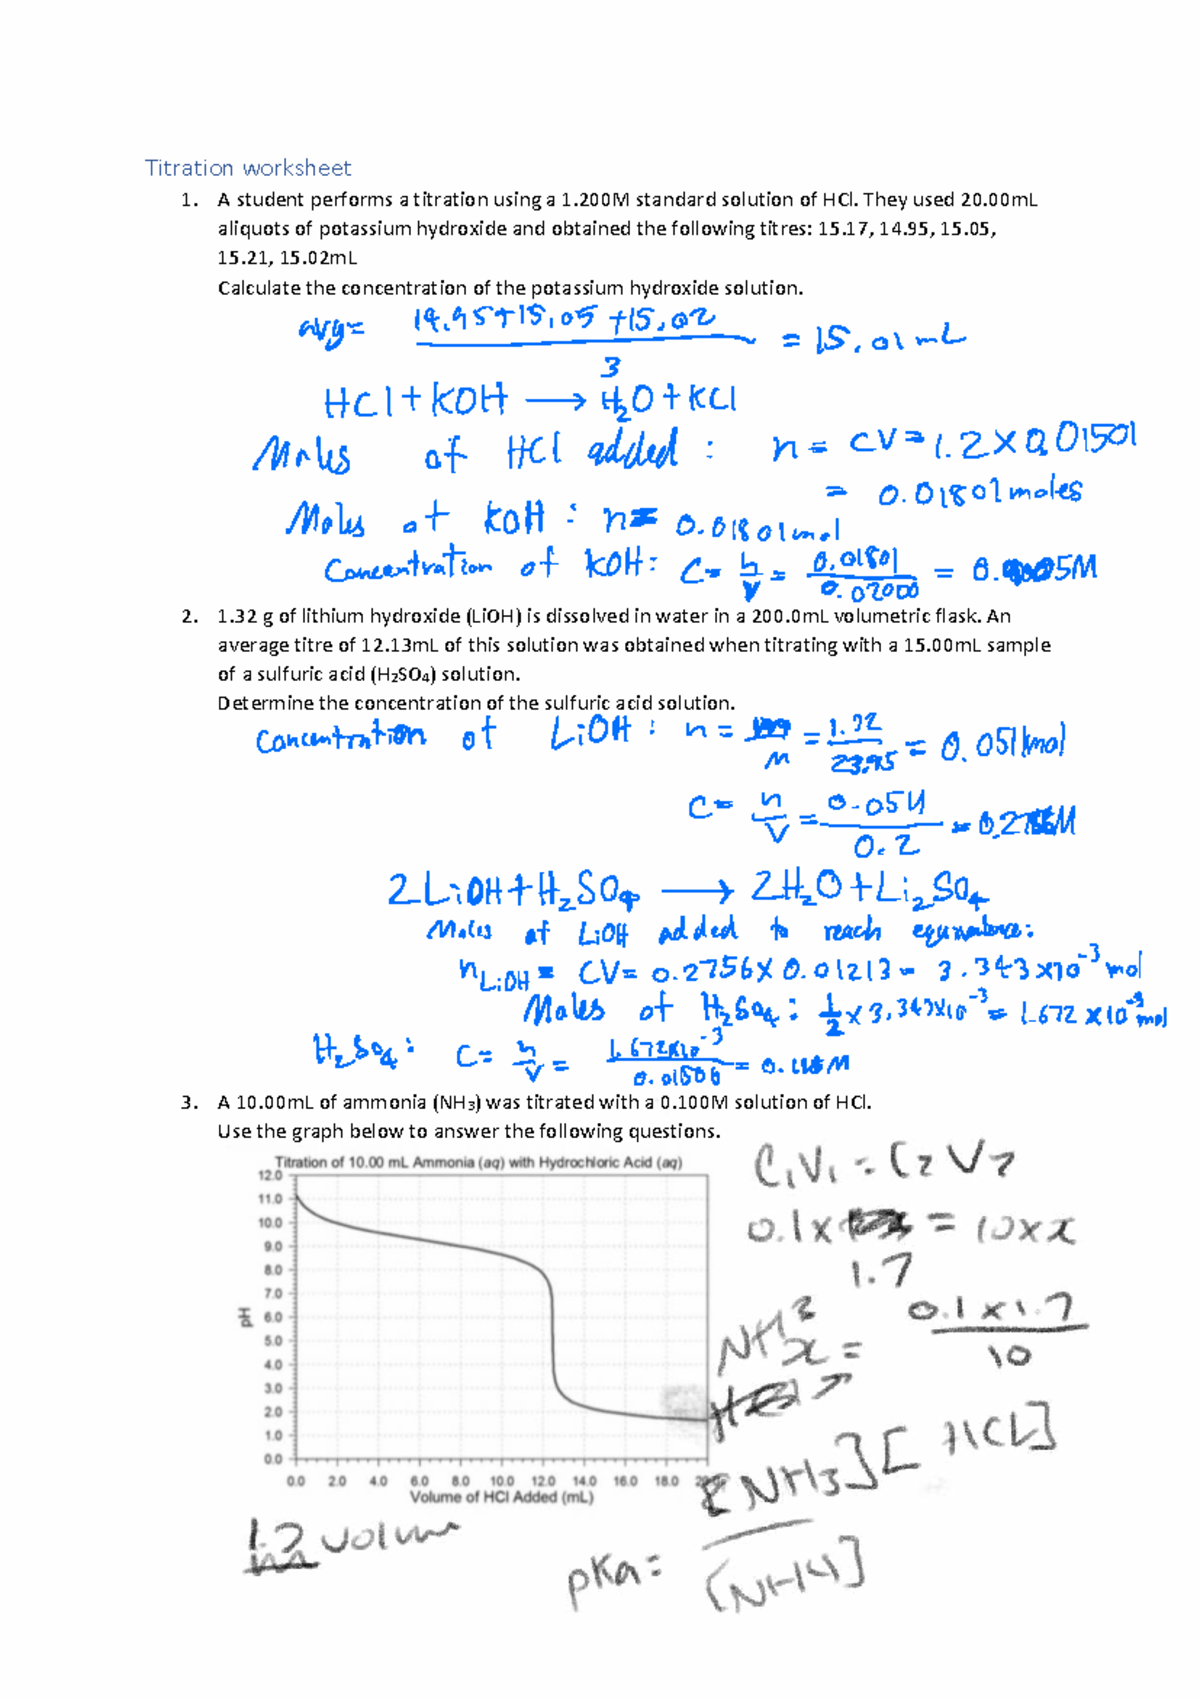 Titration worksheet
1. A student performs a titration using a 1.200M standard solution of HCl. They used 20.00mL
aliquots of potassium hydroxide and obtained the following titres: 15.17, 14.95, 15.05,
15.21, 15.02mL
Calculate the concentration of the potassium hydroxide solution.
avg= 14.95+15.05+15.02 / 3 = 15.01mL
HCl + KOH → H₂O + KCl
Moles of HCl added: n = CV = 1.2 × 0.01501
= 0.01801 moles
Moles of KOH: n= 0.01801mol
Concentration of KOH: C = n/V = 0.01801/0.02000 = 0.9005M
2. 1.32 g of lithium hydroxide (LiOH) is dissolved in water in a 200.0mL volumetric flask. An
average titre of 12.13mL of this solution was obtained when titrating with a 15.00mL sample
of a sulfuric acid (H₂SO₄) solution.
Determine the concentration of the sulfuric acid solution.
Concentration of LiOH: n = /M = 1.32/23.95 = mol
C = n/V = /0.2 = M
2LiOH + H₂SO₄ → 2H₂O + Li₂SO₄
Moles of LiOH added to reach equivalence:
nLiOH = CV = 0.2756 × 0.01213 = 3.343×10⁻³ mol
Moles of H₂SO₄: 1/2 × 3.343×10⁻³ = 1.672 ×10⁻³ mol
H₂SO₄: C = n/V = 1.672×10⁻³ / = M
3. A 10.00mL of ammonia (NH₃) was titrated with a 0.100M solution of HCl.
Use the graph below to answer the following questions.
Titration of 10.00 mL Ammonia (aq) with Hydrochloric Acid (aq)
12.0
11.0
10.0
9.0
8.0
7.0
6.0
5.0
4.0
3.0
2.0
1.0
0.0
pH
0.0 2.0 4.0 6.0 8.0 10.0 12.0 14.0 16.0 18.0
Volume of HCl Added (mL)
C₁V₁ = C₂V₂
0.1 × = 10 × x
1.7
x = 0.1 × 1.7 / 10
volume
pKa = [NH3][HCl] / [NH4]